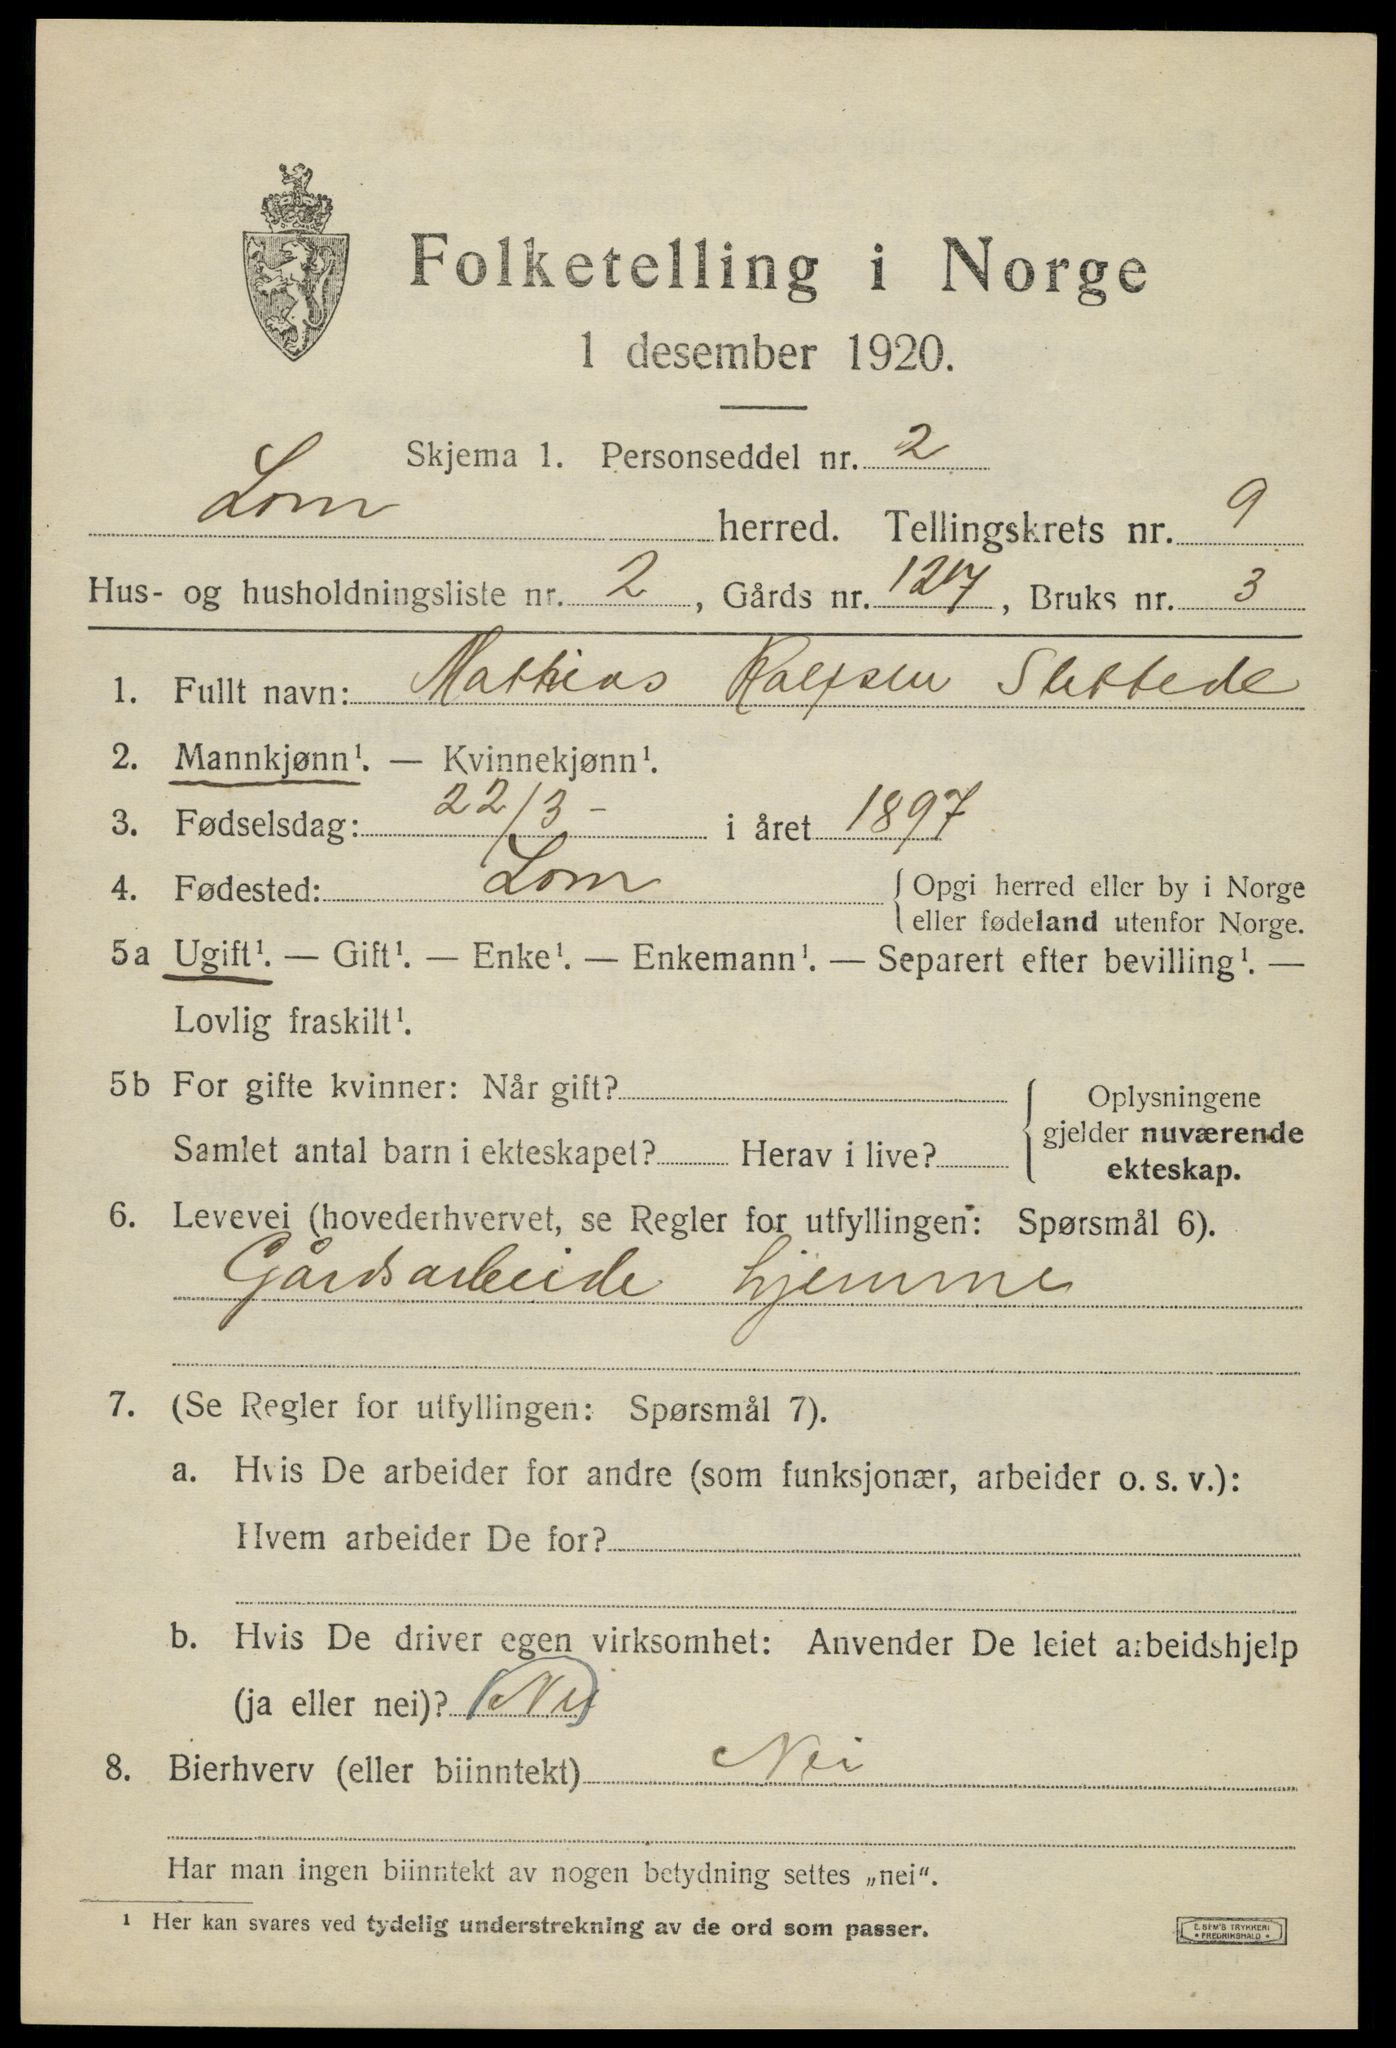 Folketelling i Norge
1 desember 1920.
Skjema 1. Personseddel nr. 2
Lom herred. Tellingskrets nr. 9
Hus- og husholdningsliste nr. 2, Gårds nr. 127, Bruks nr. 3
1. Fullt navn: Mathias Slettede
2. Mannkjønn¹. — Kvinnekjønn¹.
3. Fødselsdag: 22/3 - i året 1897
4. Fødested: Lom { Opgi herred eller by i Norge
eller fødeland utenfor Norge.
5a Ugift¹. — Gift¹. — Enke¹. — Enkemann¹. — Separert efter bevilling¹. —
Lovlig fraskilt¹.
5b For gifte kvinner: Når gift?
Samlet antal barn i ekteskapet? Herav i live?
{ Oplysningene
gjelder nuværende
ekteskap.
6. Levevei (hovederhvervet, se Regler for utfyllingen: Spørsmål 6).
Gårdsarbeide hjemme
7. (Se Regler for utfyllingen: Spørsmål 7).
a. Hvis De arbeider for andre (som funksjonær, arbeider o. s. v.):
Hvem arbeider De for?
b. Hvis De driver egen virksomhet: Anvender De leiet arbeidshjelp
(ja eller nei)? (Nei)
8. Bierhverv (eller biinntekt) Nei
Har man ingen biinntekt av nogen betydning settes „nei“.
¹ Her kan svares ved tydelig understrekning av de ord som passer.
E. SEM'S TRYKKERI
• FREDRIKSHALD •